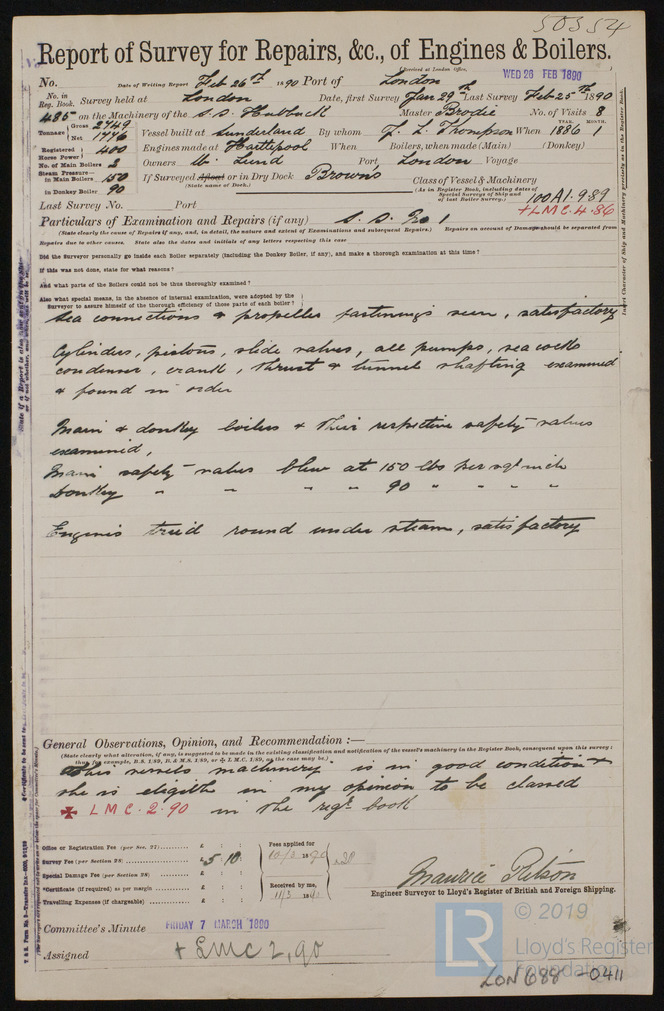 50354
Report of Survey for Repairs, &c., of Engines & Boilers.
(Received at London Office, WED 26 FEB 1890)
No. Date of Writing Report Feb 26th 1890 Port of London
No. in Reg. Book. Survey held at London Date, first Survey Jan 29th Last Survey Feb 25th 1890
485 on the Machinery of the S.S. Hubbuck Master Brodie No. of Visits 8
Tonnage Gross 2749 Net 1776 Vessel built at Sunderland By whom J. L. Thompson When 1886 YEAR. 1 MONTH.
Registered Horse Power 400 Engines made at Hartlepool When Boilers, when made (Main) (Donkey)
No. of Main Boilers 2 Owners W. Lund Port London Voyage
Steam Pressure in Main Boilers 150 If Surveyed Afloat or in Dry Dock Browns Class of Vessel & Machinery
in Donkey Boiler 90 (State name of Dock.) (As in Register Book, including dates of Special Surveys of Ship and of last Boiler Survey.) 100A1. 9.89
Last Survey No. Port +LMC. 4. 86
Particulars of Examination and Repairs (if any) S. S. No 1
(State clearly the cause of Repairs if any, and, in detail, the nature and extent of Examinations and subsequent Repairs.) Repairs on account of Damage should be separated from
Repairs due to other causes. State also the dates and initials of any letters respecting this case
Did the Surveyor personally go inside each Boiler separately (including the Donkey Boiler, if any), and make a thorough examination at this time?
If this was not done, state for what reasons?
And what parts of the Boilers could not be thus thoroughly examined?
Also what special means, in the absence of internal examination, were adopted by the
Surveyor to assure himself of the thorough efficiency of those parts of each boiler?
Sea connections & propeller fastenings seen, satisfactory
Cylinders, pistons, slide valves, all pumps, sea cocks
condenser, crank, thrust & tunnel shafting examined
& found in order
Main & donkey boilers & their respective safety valves
examined,
Main safety valves blew at 150 lbs per sqr inch
Donkey " " " " 90 " " " "
Engines tried round under steam, satisfactory
General Observations, Opinion, and Recommendation :—
(State clearly what alteration, if any, is suggested to be made in the existing classification and notification of the vessel's machinery in the Register Book, consequent upon this survey;
thus for example, B.S. 1/89, B. & M.S. 1/89, or ✠ L.M.C. 1/89, as the case may be.)
This vessels machinery is in good condition &
she is eligible in my opinion to be classed
✠ LMC. 2. 90 in the regr book
Office or Registration Fee (per Sec. 27) £ : : Fees applied for
Survey Fee (per Section 28) £ 5 : 10 : 10/3 1890
Special Damage Fee (per Section 28) £ : : Received by me,
*Certificate (if required) as per margin £ : : 11/3 1890
Travelling Expenses (if chargeable) £ : :
Maurice Ritson
Engineer Surveyor to Lloyd's Register of British and Foreign Shipping.
Committee's Minute FRIDAY 7 MARCH 1890
Assigned + LMC 2,90
LR © 2019
Lloyd's Register
Foundation
LON 688-0411